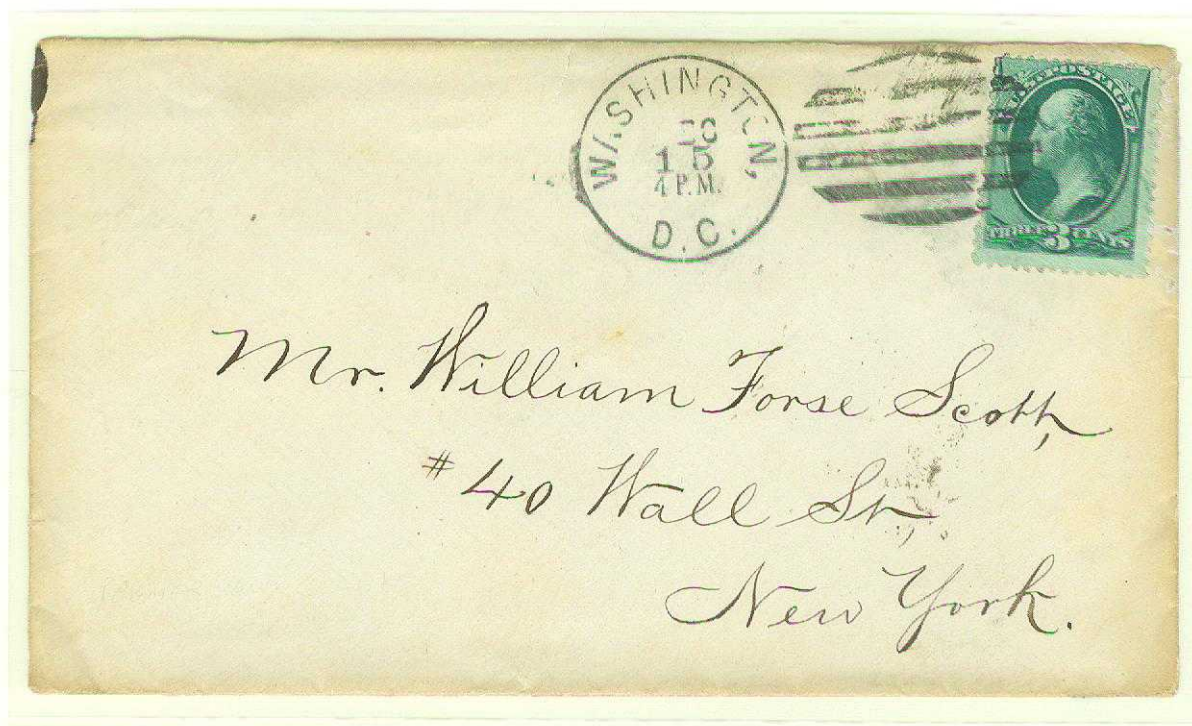 WASHINGTON,
15
4 P.M.
D.C.
U.S. POSTAGE
THREE 3 CENTS
Mr. William Forse Scott,
# 40 Wall St.,
New York.